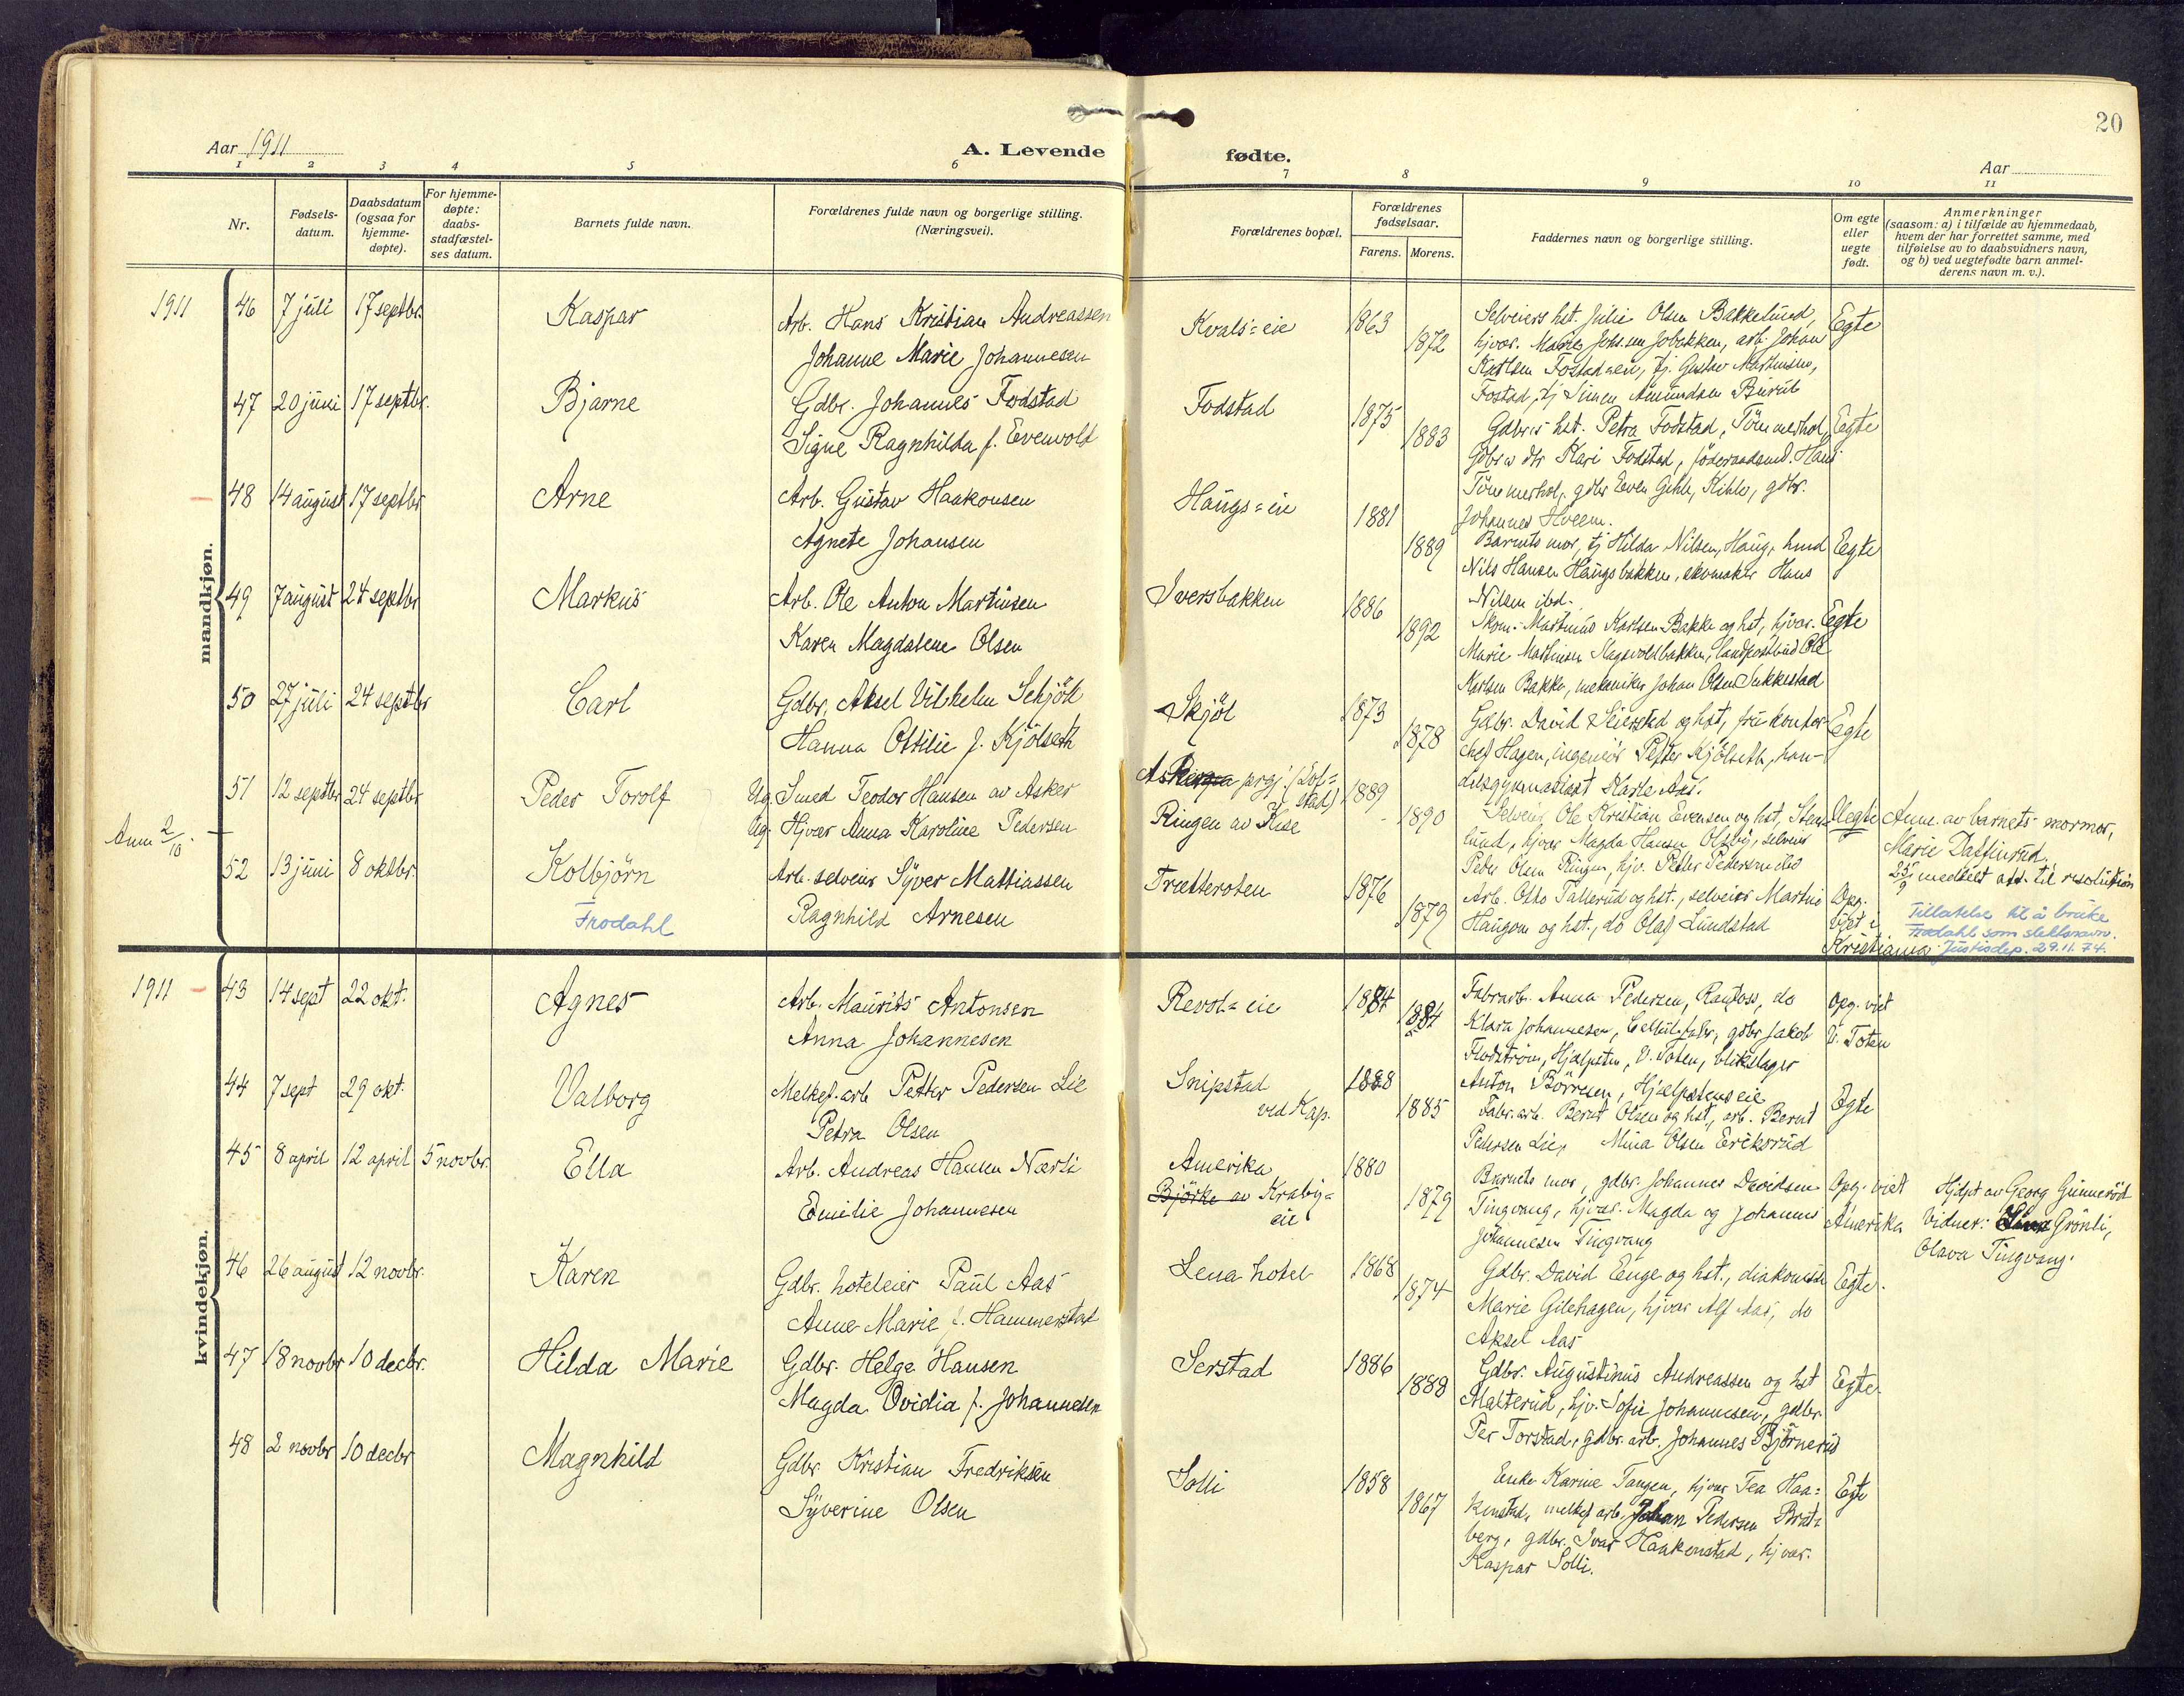 20
Aar 1911
A. Levende fødte.
Aar
1 2 3 4 5 6 7 8 9 10 11
Nr.
Fødselsdatum.
Daabsdatum (ogsaa for hjemmedøpte).
For hjemmedøpte: daabsstadfæstelses datum.
Barnets fulde navn.
Forældrenes fulde navn og borgerlige stilling. (Næringsvei).
Forældrenes bopæl.
Forældrenes fødselsaar.
Farens. Morens.
Faddernes navn og borgerlige stilling.
Om egte eller uegte født.
Anmerkninger
(saasom: a) i tilfælde av hjemmedaab,
hvem der har forrettet samme, med
tilføielse av to daabsvidners navn,
og b) ved uegtefødte barn anmelderens navn m. v.).
mandkjøn.
1911 46 7 juli 17 septbr. Kaspar
Arb. Hans Kristian Andreassen
Johanne Marie Johannesen
Kvals=eie 1863 1872
Selveiers hst. Julie Olsen Bakkelund,
Karlsen Fostadeien, tj. Gustav Martinsen,
Fostad, tj Simen Amundsen
Egte
47 20 juni 17 septbr. Bjarne
Gdbr. Johannes Fodstad
Signe Ragnhilda f. Evenvold
Fodstad 1875 1883
Gdbr.s hst. Petra Fodstad, Tömmerhol,
Gdbr.s dtr Kari Fodstad, föderaadsmd. Hans
Tömmerhol, gdbr Even Gihle, Kihle, gdbr.
Johannes Hveem.
Egte
48 14 august 17 septbr Arne
Arb. Gustav Haakonsen
Agnete Johansen
Haugs=eie 1881 1889
Barnets mor, tj Hilda Nilsen, Haug, hmd
Nils Hansen Haugsbakken, skomaker Hans
Nilsen ibd.
Egte
49 7 august 24 septbr Markus
Arb. Ole Anton Martinsen
Karen Magdalene Olsen
Iversbakken 1886 1892
Skom. Martinus Karlsen Bakke og hst, hjvar.
Marie Martinsen Hagevoldbakken, landpostbud Ole
Karlsen Bakke, mekaniker Johan Olsen Sukkestad
Egte
50 27 juli 24 septbr Carl
Gdbr. Aksel Vilhelm Schjöll
Hanna Ottilie f. Kjölseth
Skjöl 1873 1878
Gdbr. David Seierstad og hst, fru kontor-
chef Hagen, ingeniör Petter Kjölseth, han-
delsgymnasiast Aas.
Egte
51 12 septbr 24 septbr Peder Torolf
Ug. Smed Teodor Hansen av Asker
Ug. Hjvær Anna Karoline Pedersen
Asker prgj. (Lof=
stad)
Ringen av Kise
1889 1890
Selveier Ole Kristian Evensen og hst, Sten=
lund, hjvær Magda Hansen Olsby, selveier
Peder Olsen Ringen, hjv. Petter Pedersen ibd
Uegte
Anm. av barnets mormor,
Marie Dattinrud.
25/9 meddelt att. til resolution
Anm 2/10.
52 13 juni 8 oktbr. Kolbjörn
Frodahl
Arb. selveier Syver Mattiassen
Ragnhild Arnesen
Trætteroten 1876 1879
Arb. Otto Tallerud og hst., selveier Martin
Haugom og hst., do Olaf Lundstad
Opg. viet i Kristiania
Tillatelse til å bruke
Frodahl som slektsnavn.
Justisdep. 29.11.74.
kvindekjøn.
1911 43 14 sept 22 okt. Agnes
Arb. Maurits Antonsen
Anna Johannesen
Revol=eie 1884 1884
Fabrarb. Anna Pedersen, Raufoss, do
Klara Johannesen, Cellulsfabr, gdbr Jakob
Flodström, Hjælpsten, V. Toten, blikslager
Anton Börresen, Hjælpstens eie
Opg. viet V. Toten
44 7 sept 29 okt. Valborg
Melkef. arb Petter Pedersen Lie
Petra Olsen
Snipstad
ved Kap.
1888 1885
Fabr. arb. Bernt Olsen og hst, arb. Bernt
Pedersen Lie, Mina Olsen Eriksrud
Egte
45 8 april 12 april 5 novbr. Ella
Arb. Andreas Hansen Nærli
Emilie Johannesen
Amerika
Björke av Kraby=
eie
1880 1879
Barnets mor, gdbr. Johannes Davidsen
Tingvang, hjvær. Magda og Johannes
Johannesen Tingvang
Opg. viet Amerika
Hjdpt av Georg Gunneröd
Vidner: Grönli,
Olava Tingvang.
46 26 august 12 novbr. Karen
Gdbr. hoteleier Paul Aas
Anne Marie f. Hammerstad
Lena hotel 1868 1874
Gdbr. David Enge og hst., diakonisse
Marie Gilehagen, hjvær Alf Aas, do
Aksel Aas
Egte.
47 18 novbr 10 decbr. Hilda Marie
Gdbr. Helge Hansen
Magda Ovidia f. Johannesen
Serstad 1886 1888
Gdbr. Augustinus Andreassen og hst
Malterud, hjv. Sofie Johannesen, gdbr.
Per Torstad, gdbr. arb. Johannes Björnerud
Egte.
48 2 novbr 10 decbr Magnhild
Gdbr Kristian Fredriksen
Syverine Olsen
Solli 1858 1867
Enke Karine Tangen, hjvær Tea Haa=
kenstad, melkef arb. Johan Pedersen Brat=
berg, gdbr. Ivar Haakenstad, hjvær.
Kaspar Solli.
Egte